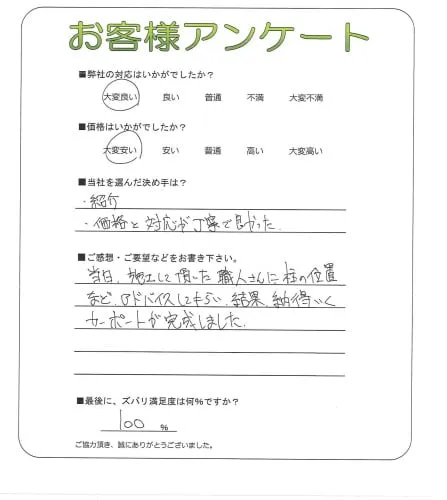 お客様アンケート
■弊社の対応はいかがでしたか？
大変良い 良い 普通 不満 大変不満
■価格はいかがでしたか？
大変安い 安い 普通 高い 大変高い
■当社を選んだ決め手は？
・紹介
・価格と対応が丁寧で良かった.
■ご感想・ご要望などをお書き下さい。
当日、施工して頂いた職人さんに柱の位置
など、アドバイスしてもらい、結果、納得いく
カーポートが完成しました.
■最後に、ズバリ満足度は何％ですか？
100 ％
ご協力頂き、誠にありがとうございました。